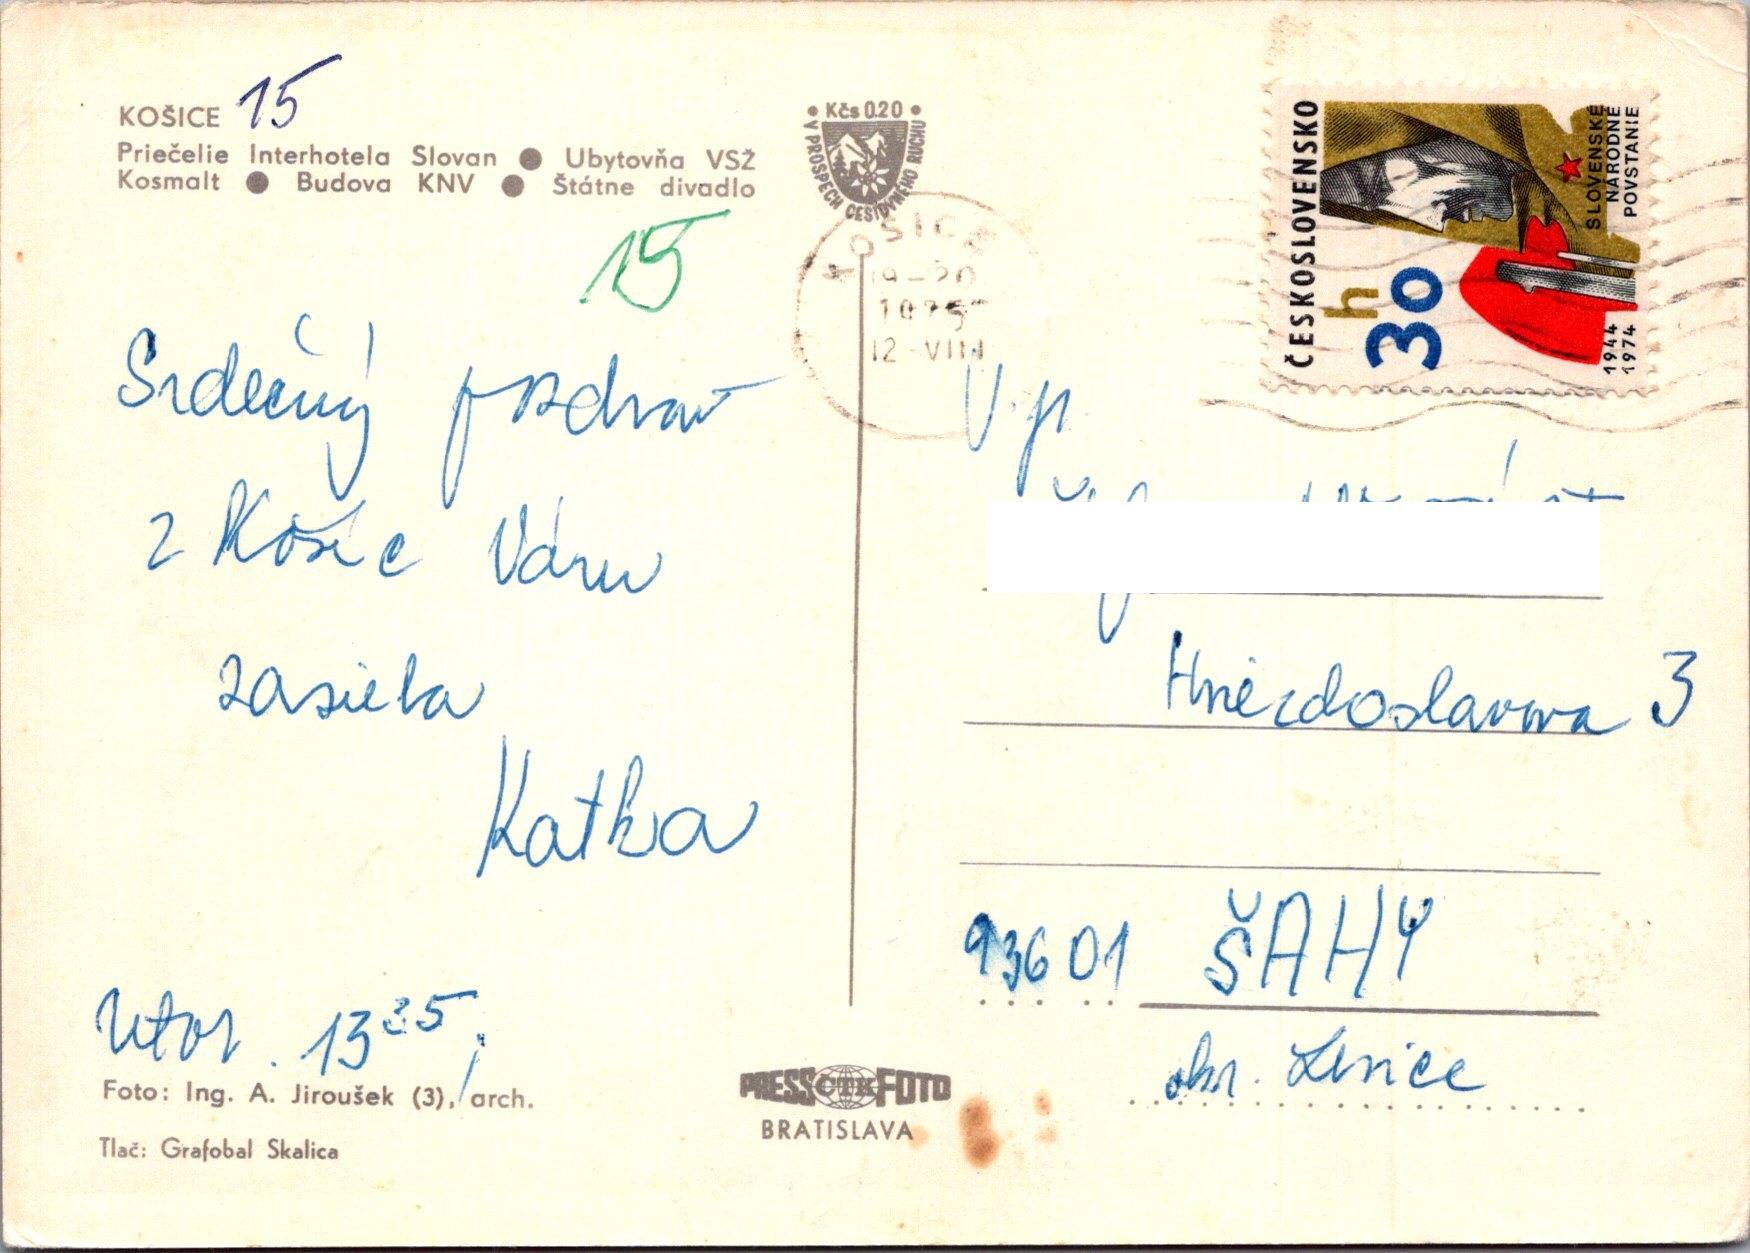 KOŠICE 15
Priečelie Interhotela Slovan ● Ubytovňa VSŽ
Kosmalt ● Budova KNV ● Štátne divadlo
15
Srdečný pozdrav
z Košíc Vám
zasiela
Katka
Utor. 13 35
Foto: Ing. A. Jiroušek (3), arch.
Tlač: Grafobal Skalica
• Kčs 0.20 •
V PROSPECH CESTOVNÉHO RUCHU
KOŠICE
19-20
1975
12-VIII
ČESKOSLOVENSKO
30 h
SLOVENSKÉ
NÁRODNÉ
POVSTANIE
1944
1974
V. p.
Hviezdoslavova 3
936 01 ŠAHY
okr. Levice
PRESS ČTK FOTO
BRATISLAVA